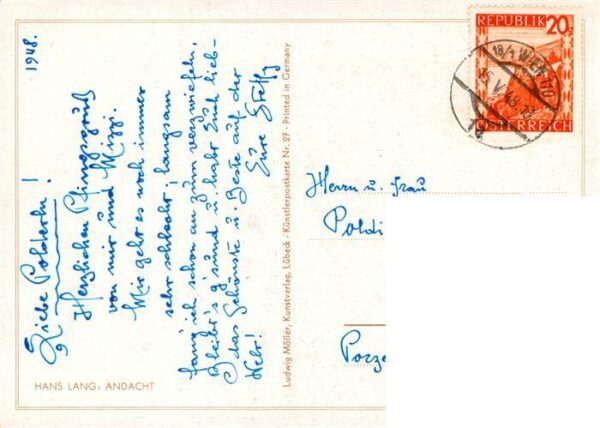 1948.
Liebe Polderln!
Herzlichen Pfingstgruß
von mir und Mizzi.
Mir geht es noch immer
sehr schlecht, langsam
fang ich schon an zum verzweifeln,
bleibt's g'sund u. habt Euch lieb-
das Schönste u. Beste auf der
Welt! Eure Steffy
HANS LANG: ANDACHT
Ludwig Möller, Kunstverlag, Lübeck · Künstlerpostkarte Nr. 27 · Printed in Germany
REPUBLIK 20
ÖSTERREICH
18/1 WIEN 110
15. V. 48
Herrn u. Frau
Poldi
Porze